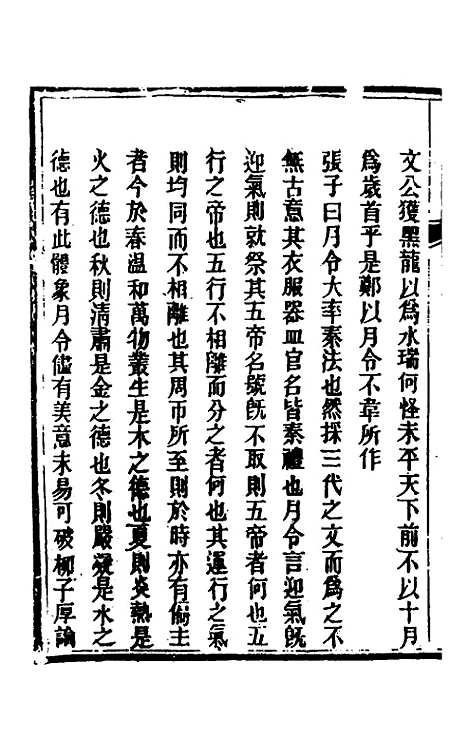 文公獲黑龍以為水瑞何怪未平天下前不以十月
為歲首乎是鄭以月令不韋所作
張子曰月令大率秦法也然採三代之文而為之不
無古意其衣服器皿官名皆秦禮也月令言迎氣旣
迎氣則就祭其五帝名號旣不取則五帝者何也五
行之帝也五行不相離而分之者何也其運行之氣
則均同而不相離也其周帀所至則於時亦有偏主
者今於春溫和萬物叢生是木之德也夏則炎熱是
火之德也秋則清肅是金之德也冬則嚴凝是水之
德也有此體象月令儘有美意未易可破柳子厚論